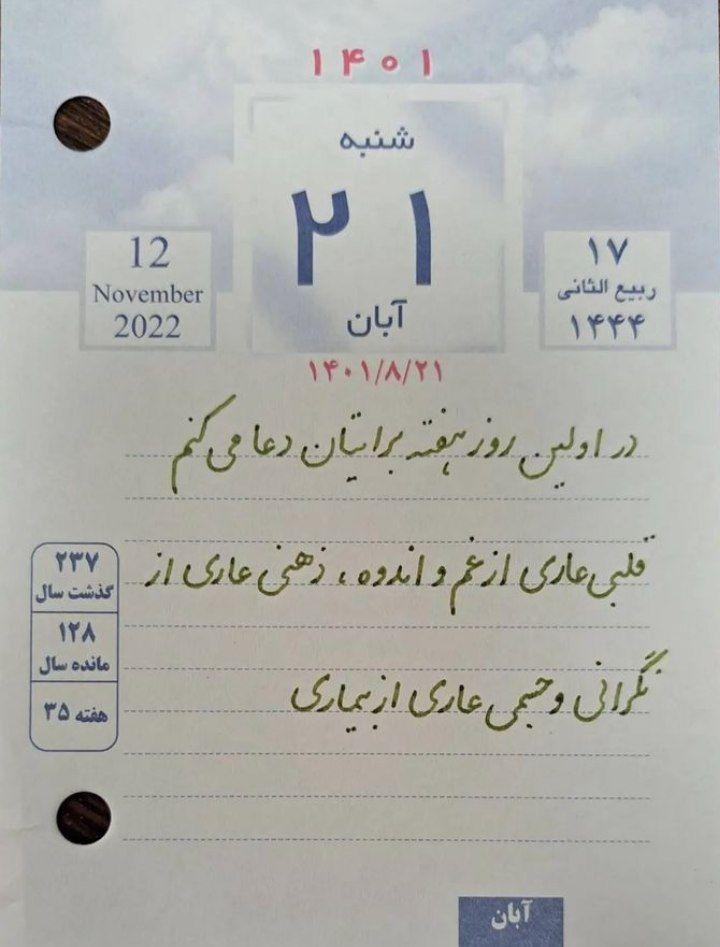 ۱۴۰۱
شنبه
۲۱
آبان
12
November
2022
۱۷
ربیع الثانی
۱۴۴۴
۱۴۰۱/۸/۲۱
در اولین روز هفته برایتان دعا می کنم
قلبی عاری از غم و اندوه، ذهنی عاری از
نگرانی و جسمی عاری از بیماری
۲۳۷
گذشت سال
۱۲۸
مانده سال
هفته ۳۵
آبان